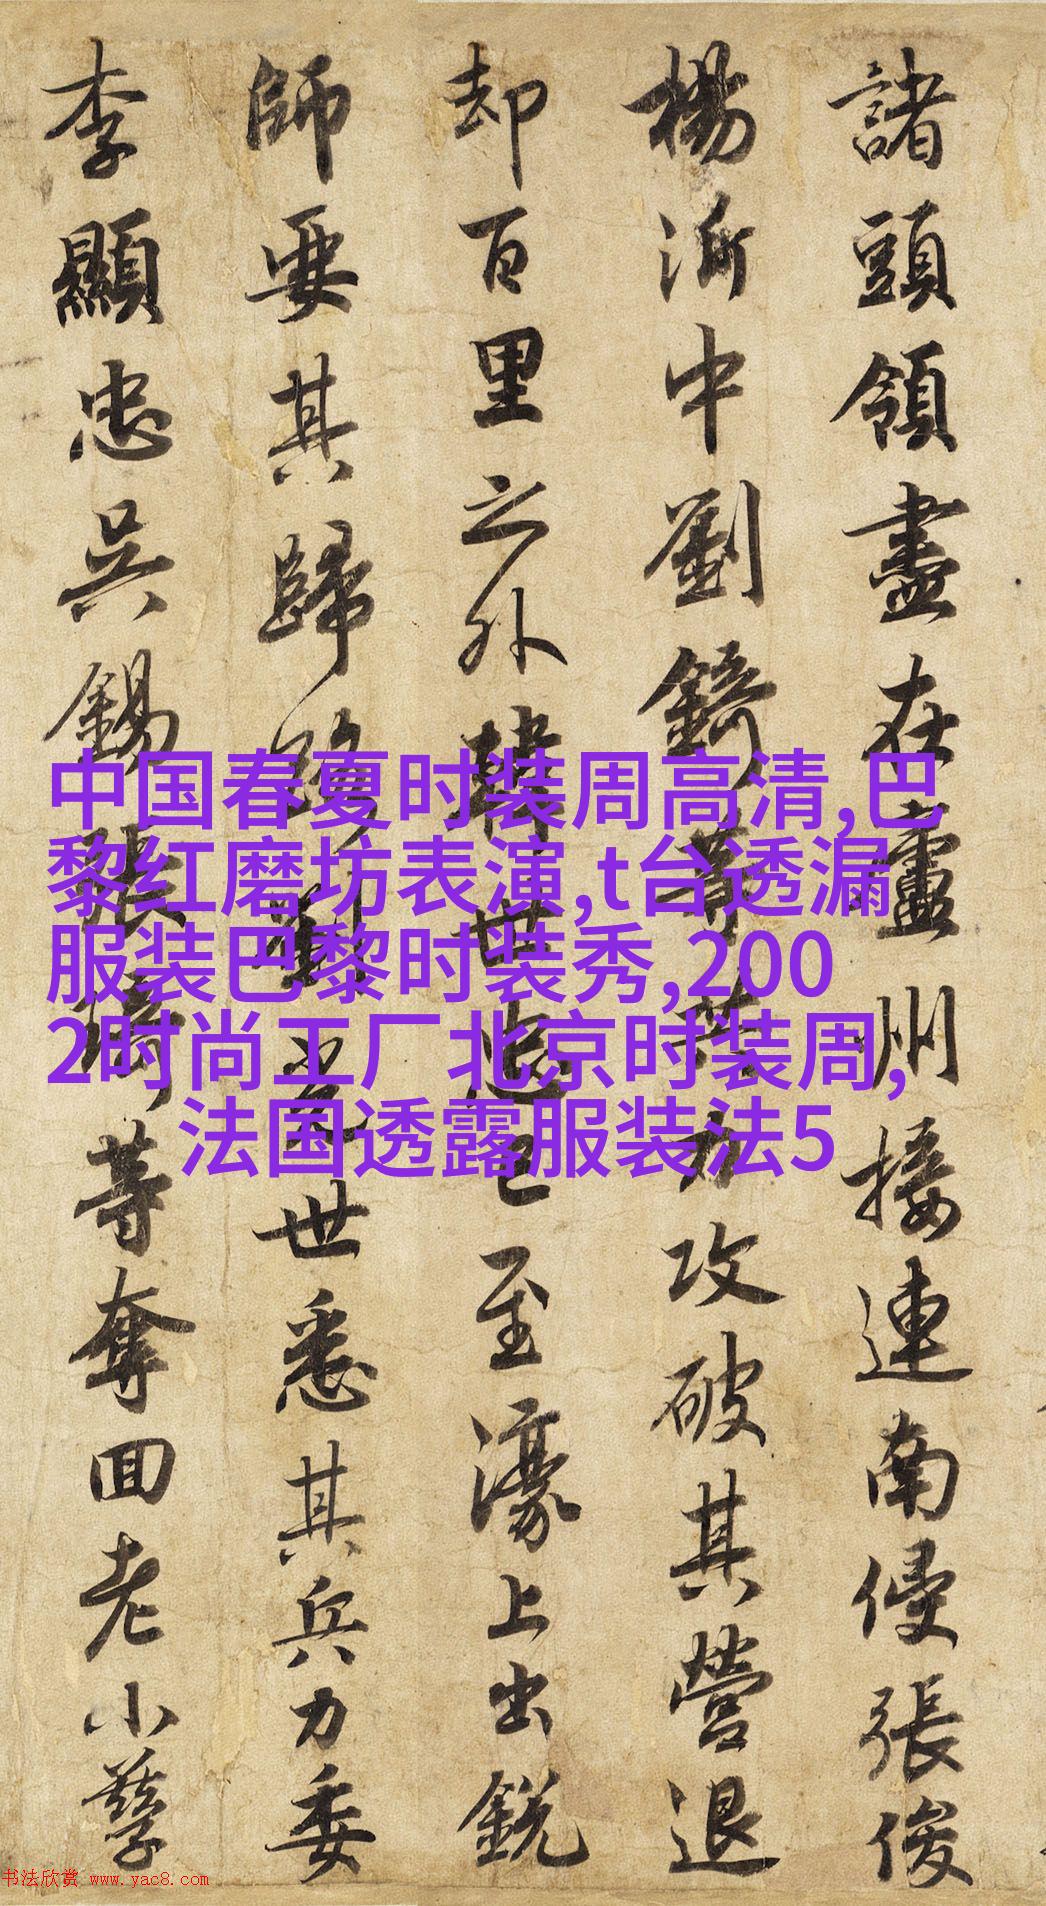 諸頭領盡在廬州接連南侵張俊
楊沂中劉錡等共力攻破其營退
却百里之外韓世忠已至濠上出銳
師要其歸路劉光世悉其兵力委
李顯忠吳錫張琦等奪回老小孳
中国春夏时装周高清,巴
黎红磨坊表演,t台透漏
服装巴黎时装秀,200
2时尚工厂北京时装周,
法国透露服装法5
书法欣赏 www.yac8.com